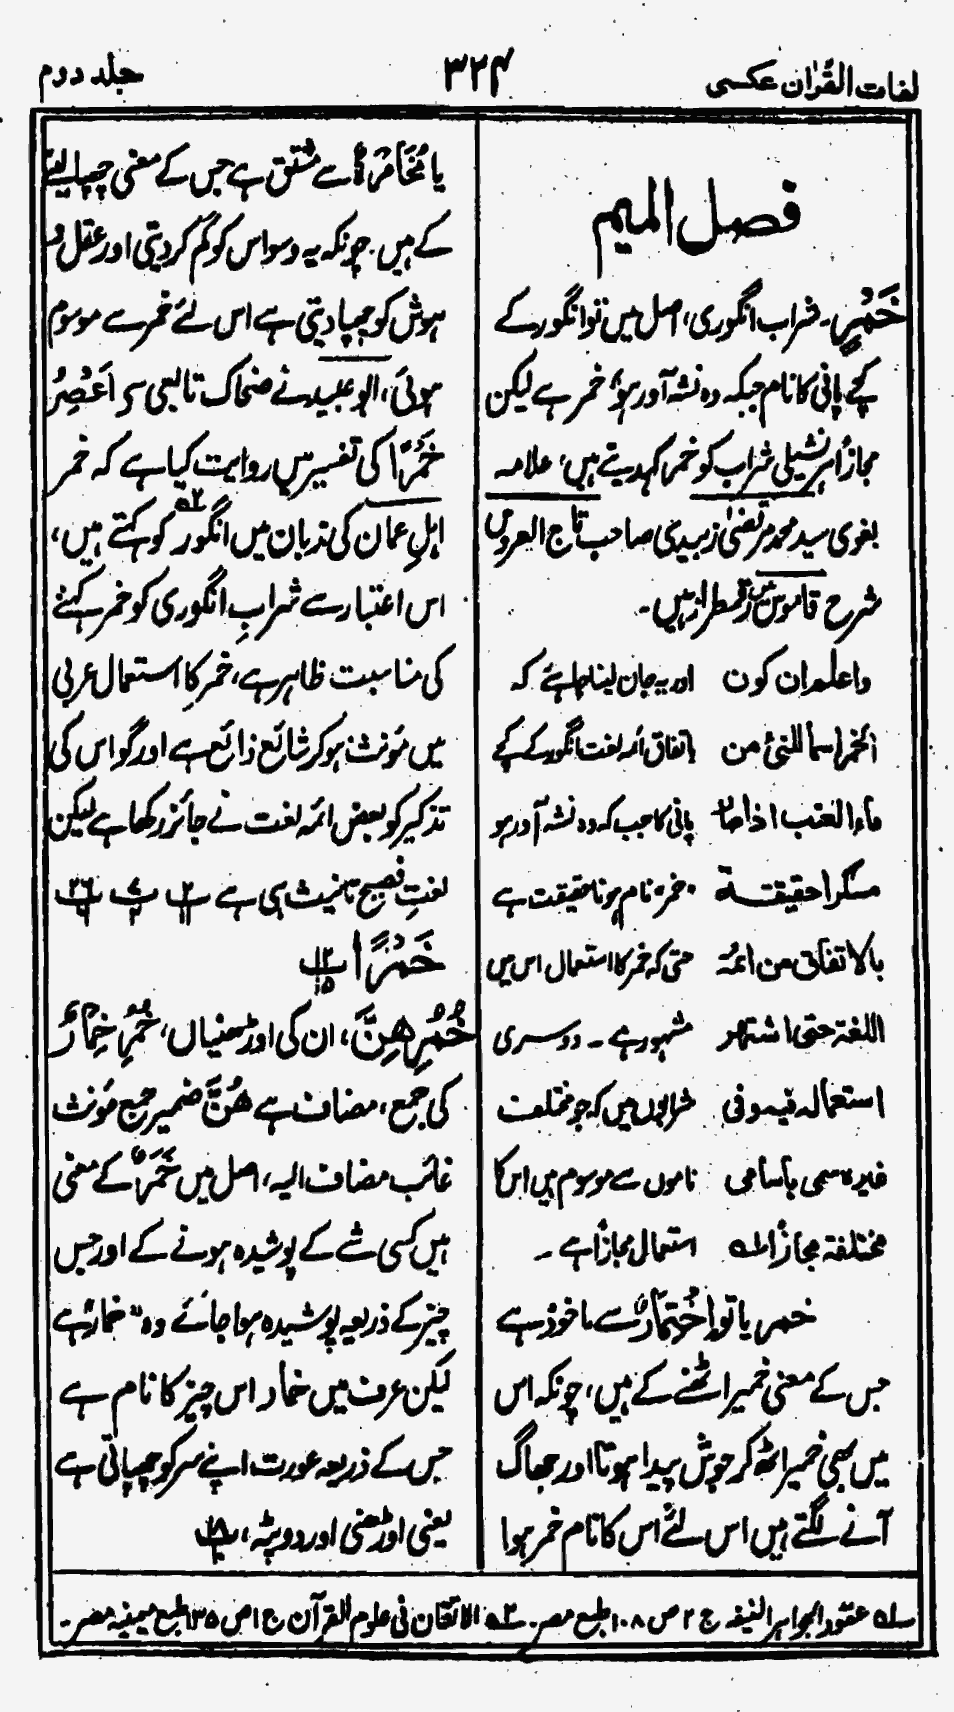 لغات القرآن عکسی
۳۲۴
جلد دوم
فصل المیم
خَمْرٍ۔ شراب انگوری، اصل میں تو انگور کے
کچے پانی کا نام جبکہ وہ نشہ آور ہو، خمر ہے لیکن
مجازاً ہر نشیلی شراب کو خمر کہدیتے ہیں، علامہ
لغوی سید محمد مرتضیٰ زبیدی صاحب تاج العروس
شرح قاموس میں رقمطراز ہیں۔
واعلم ان کون اور یہ جان لینا چاہئے کہ
الخمر اسماً للنیٔ من باتفاق ائمہ لغت انگور کے کچے
ماء العنب اذا صار پانی کا جب کہ وہ نشہ آور ہو
مسکرا حقیقة "خمر" نام ہونا حقیقت ہے
بالاتفاق من ائمۃ حتی کہ خمر کا استعمال اس میں
اللغة حتی اشتهر مشہور ہے۔ دوسری
استعماله فیه وفی شرابوں میں کہ جو مختلف
غیره سمی باسامی ناموں سے موسوم ہیں اس کا
مختلفة مجازا لہ استعمال مجازاً ہے۔
خمر یا تو اِخْتِمَارٌ سے ماخوذ ہے
جس کے معنی خمیر اٹھنے کے ہیں، چونکہ اس
میں بھی خمیر اٹھ کر جوش پیدا ہوتا اور جھاگ
آنے لگتے ہیں اس لئے اس کا نام خمر ہوا
یا مُخَامَرَۃٌ سے مشتق ہے جس کے معنی چھپا لینے
کے ہیں۔ چونکہ یہ وسواس کو گم کر دیتی اور عقل و
ہوش کو چھپا دیتی ہے اس لئے خمر سے موسوم
ہوئی، ابو عبید نے ضحاک تابعی سے اَعْصِرُ
خَمْرًا کی تفسیر میں روایت کیا ہے کہ خمر
اہلِ عمان کی زبان میں انگور کو کہتے ہیں،
اس اعتبار سے شرابِ انگوری کو خمر کہنے
کی مناسبت ظاہر ہے، خمر کا استعمال عربی
میں مؤنث ہو کر شائع ذائع ہے اور گو اس کی
تذکیر کو بعض ائمہ لغت نے جائز رکھا ہے لیکن
لغتِ فصیح تانیث ہی ہے
خَمْرًا
خُمُرِهِنَّ، ان کی اوڑھنیاں، خُمُرٌ خِمَارٌ
کی جمع، مضاف ہے هُنَّ ضمیر جمع مؤنث
غائب مضاف الیہ، اصل میں خَمْرٌ کے معنی
ہیں کسی شے کے پوشیدہ ہونے کے اور جس
چیز کے ذریعہ پوشیدہ ہوا جائے وہ "خمار" ہے
لیکن عرف میں خمار اس چیز کا نام ہے
جس کے ذریعہ عورت اپنے سر کو چھپاتی ہے
یعنی اوڑھنی اور دوپٹہ،
لہ عقود الجواہر المنیفہ ج ۲ ص ۱۰۸ طبع مصر۔ ۲ہ الاتقان فی علوم القرآن ج ۱ ص ۱۳۵ طبع میمنیہ مصر۔